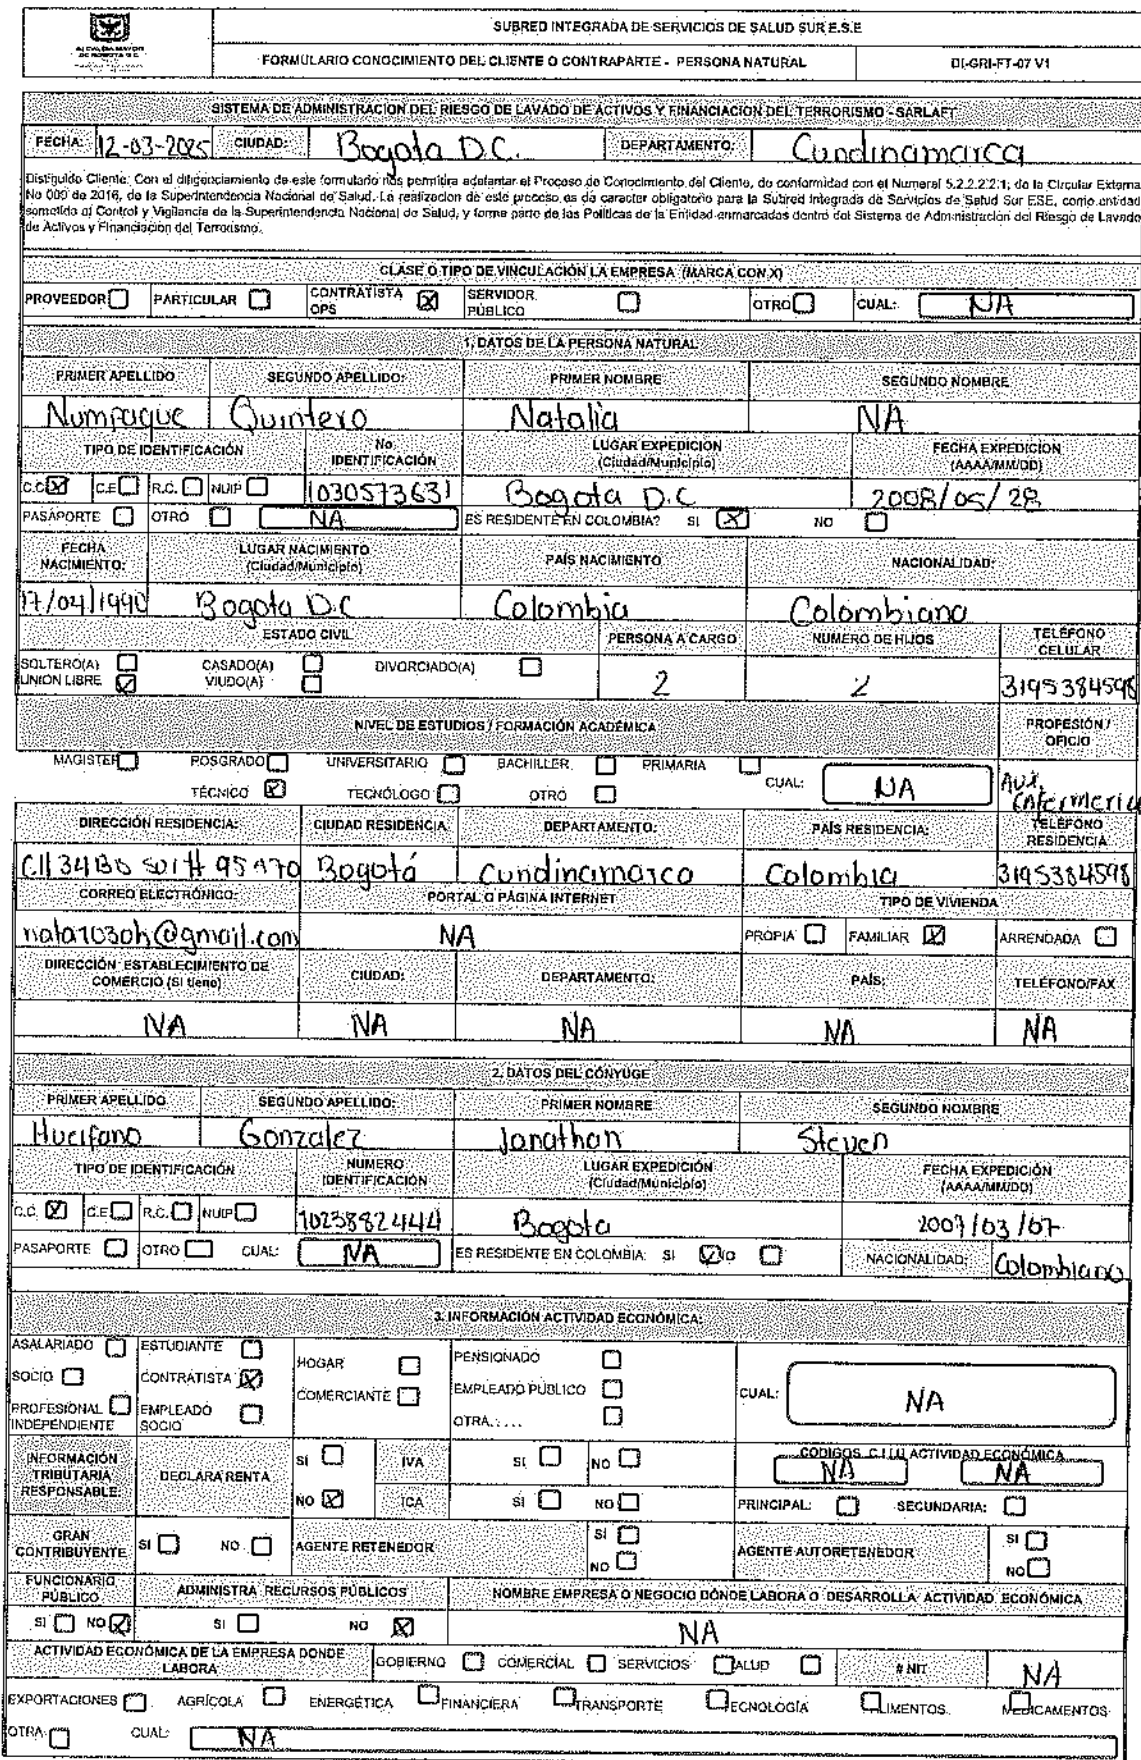 ALCALDIA MAYOR
DE BOGOTA D.C.
SUBRED INTEGRADA DE SERVICIOS DE SALUD SUR E.S.E
FORMULARIO CONOCIMIENTO DEL CLIENTE O CONTRAPARTE - PERSONA NATURAL DI-GRI-FT-07 V1
SISTEMA DE ADMINISTRACION DEL RIESGO DE LAVADO DE ACTIVOS Y FINANCIACION DEL TERRORISMO - SARLAFT
FECHA: 12-03-2025 CIUDAD: Bogota D.C. DEPARTAMENTO: Cundinamarca
Distiguido Cliente: Con el diligenciamiento de este formulario nos permitira adelantar el Proceso de Conocimiento del Cliente, de conformidad con el Numeral 5.2.2.2.2.1; de la Circular Externa
No 009 de 2016, de la Superintendencia Nacional de Salud. La realizacion de este proceso es de caracter obligatorio para la Subred Integrada de Servicios de Salud Sur ESE, como entidad
sometida al Control y Vigilancia de la Superintendencia Nacional de Salud, y forma parte de las Politicas de la Entidad enmarcadas dentro del Sistema de Administracion del Riesgo de Lavado
de Activos y Financiacion del Terrorismo.
CLASE O TIPO DE VINCULACIÓN LA EMPRESA (MARCA CON X)
PROVEEDOR PARTICULAR CONTRATISTA OPS X SERVIDOR PÚBLICO OTRO CUAL: NA
1. DATOS DE LA PERSONA NATURAL
PRIMER APELLIDO SEGUNDO APELLIDO: PRIMER NOMBRE SEGUNDO NOMBRE
Numpaque Quintero Natalia NA
TIPO DE IDENTIFICACIÓN No IDENTIFICACIÓN LUGAR EXPEDICION (Ciudad/Municipio) FECHA EXPEDICION (AAAA/MM/DD)
C.C X C.E R.C. NUIP 1030573631 Bogota D.C 2008/05/28
PASAPORTE OTRO NA ES RESIDENTE EN COLOMBIA? SI X NO
FECHA NACIMIENTO: LUGAR NACIMIENTO (Ciudad/Municipio) PAÍS NACIMIENTO NACIONALIDAD:
17/04/1990 Bogota D.C Colombia Colombiana
ESTADO CIVIL PERSONA A CARGO NUMERO DE HIJOS TELÉFONO CELULAR
SOLTERO(A) CASADO(A) DIVORCIADO(A)
UNION LIBRE X VIUDO(A) 2 2 3195384598
NIVEL DE ESTUDIOS / FORMACIÓN ACADÉMICA PROFESIÓN / OFICIO
MAGISTER POSGRADO UNIVERSITARIO BACHILLER PRIMARIA
TÉCNICO X TECNÓLOGO OTRO CUAL: NA Aux. Enfermeria
DIRECCIÓN RESIDENCIA: CIUDAD RESIDENCIA DEPARTAMENTO: PAÍS RESIDENCIA: TELÉFONO RESIDENCIA
Bogotá Cundinamarca Colombia 3195384598
CORREO ELECTRÓNICO: PORTAL O PÁGINA INTERNET TIPO DE VIVIENDA
nata1030h@gmail.com NA PROPIA FAMILIAR X ARRENDADA
DIRECCIÓN ESTABLECIMIENTO DE COMERCIO (Si tiene) CIUDAD: DEPARTAMENTO: PAÍS: TELÉFONO/FAX
NA NA NA NA NA
2. DATOS DEL CÓNYUGE
PRIMER APELLIDO SEGUNDO APELLIDO: PRIMER NOMBRE SEGUNDO NOMBRE
Gonzalez Jonathan Steven
TIPO DE IDENTIFICACIÓN NUMERO IDENTIFICACIÓN LUGAR EXPEDICIÓN (Ciudad/Municipio) FECHA EXPEDICIÓN (AAAA/MM/DD)
C.C. X C.E R.C. NUIP 1023882444 Bogota 2007/03/07
PASAPORTE OTRO CUAL: NA ES RESIDENTE EN COLOMBIA: SI X NO NACIONALIDAD: Colombiano
3. INFORMACIÓN ACTIVIDAD ECONÓMICA:
ASALARIADO ESTUDIANTE HOGAR PENSIONADO
SOCIO CONTRATISTA X COMERCIANTE EMPLEADO PÚBLICO CUAL: NA
PROFESIONAL INDEPENDIENTE EMPLEADO SOCIO OTRA.....
INFORMACIÓN TRIBUTARIA RESPONSABLE: DECLARA RENTA SI IVA SI NO CODIGOS C.I.I.U ACTIVIDAD ECONÓMICA
NA NA
NO X ICA SI NO PRINCIPAL: SECUNDARIA:
GRAN CONTRIBUYENTE SI NO AGENTE RETENEDOR SI NO AGENTE AUTORETENEDOR SI NO
FUNCIONARIO PÚBLICO ADMINISTRA RECURSOS PÚBLICOS NOMBRE EMPRESA O NEGOCIO DÓNDE LABORA O DESARROLLA ACTIVIDAD ECONÓMICA
SI NO X SI NO X NA
ACTIVIDAD ECONÓMICA DE LA EMPRESA DONDE LABORA GOBIERNO COMERCIAL SERVICIOS ALUD # NIT NA
EXPORTACIONES AGRÍCOLA ENERGÉTICA FINANCIERA TRANSPORTE ECNOLOGÍA LIMENTOS MEDICAMENTOS
OTRA CUAL: NA